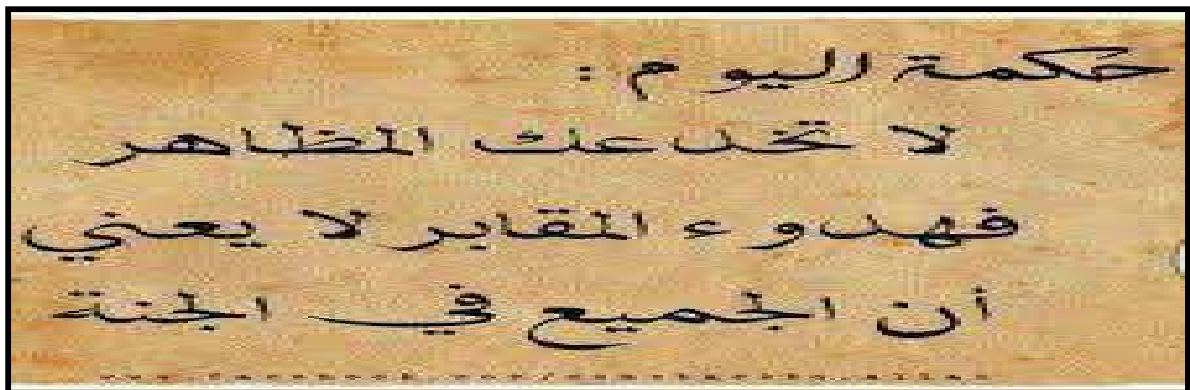 حكمة اليوم :
لا تخدعك المظاهر
فهدوء المقابر لا يعني
أن الجميع في الجنة